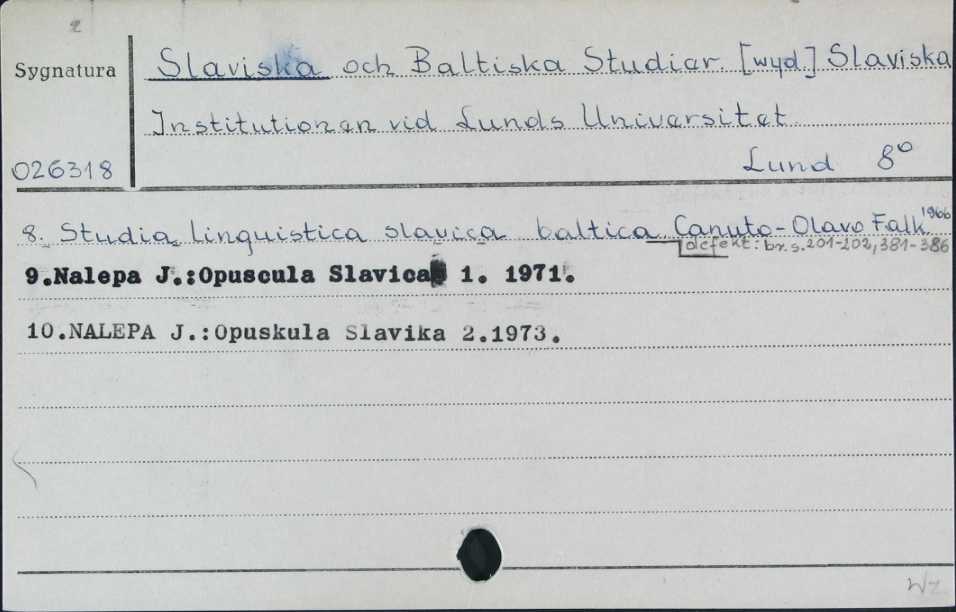 2
Sygnatura
Slaviska och Baltiska Studier. [wyd.] Slaviska
Institutionen vid Lunds Universitet
026318
Lund 8°
8. Studia linguistica slavica baltica Canuto-Olavo Falk 1966
defekt: br.s. 201-202, 381-386
9.Nalepa J.:Opuscula Slavica 1. 1971.
10.NALEPA J.:Opuskula Slavika 2.1973.
Wz